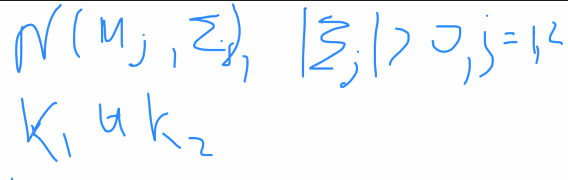 N(μj, Σj), |Σj| > 0, j = 1,2
K1 и K2